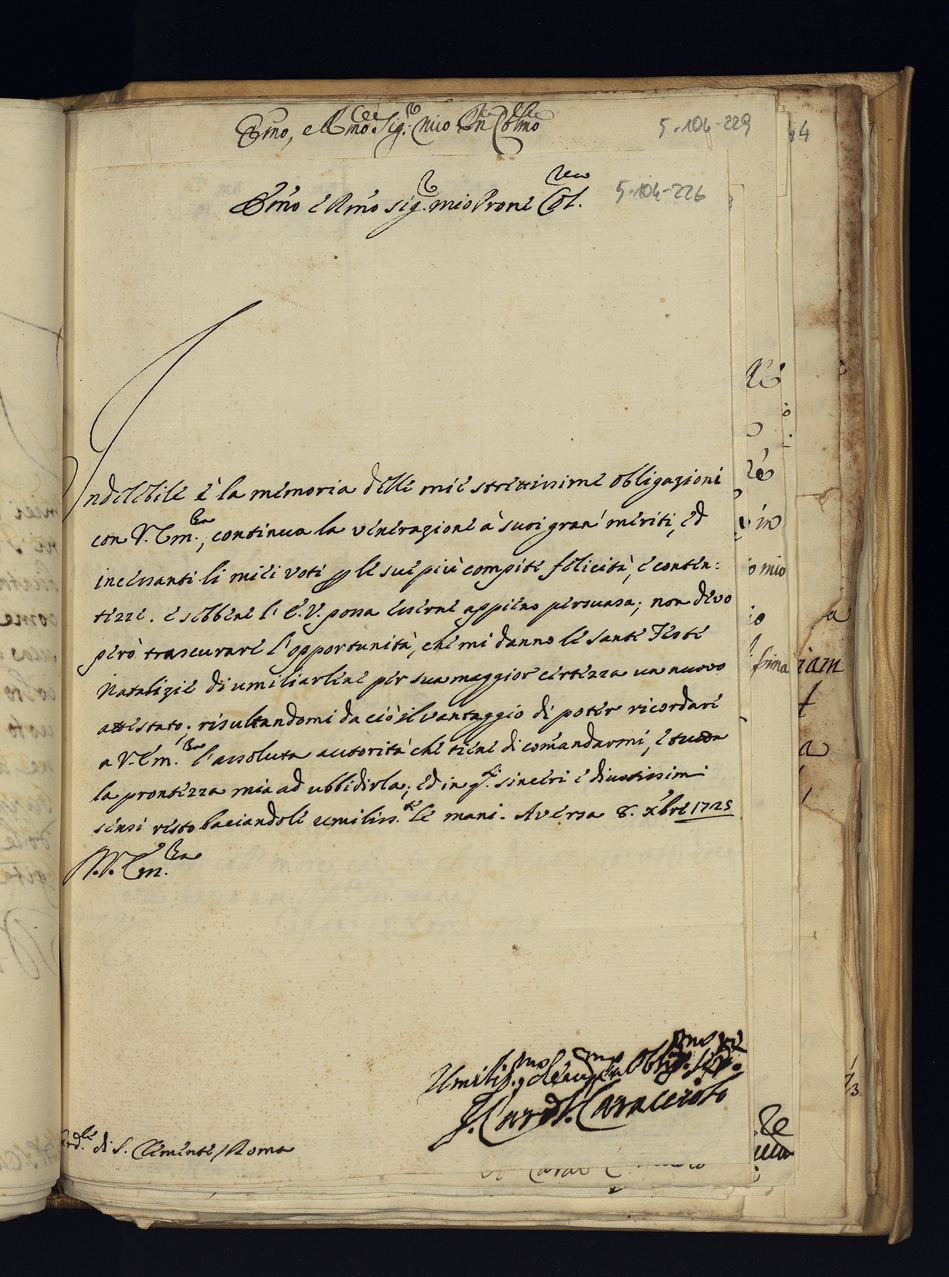 Emo, e Rmo Sig. mio Pne Colmo
5-104-229
Emo e Rmo Sig. mio Prone Col.
5-104-226
Indelebile è la memoria delle mie strettissime obligazioni
con V. Em.za, continua la venerazione a' suoi grani meriti, ed
incessanti li miei voti p le sue più compite felicità, e conten:
tezze. e sebbene l'E.V. possa esserne appieno persuasa; non devo
però trascurare l'opportunità, che mi danno le Sante Feste
Natalizie di umiliarlene per sua maggior certezza un nuovo
attestato. risultandomi da ciò il vantaggio di poter ricordare
a V. Em.za l'assoluta autorità che tiene di comandarmi, e tutta
la prontezza mia ad ubbidirla; ed in q.ti sinceri e divotissimi
sensi resto baciandole umiliss.te le mani. Aversa 8. xbre 1725
D. V. Em.za
Umiliss.mo
Oblig.mo
J. Card. Caracciolo
rd.le di S. Clemente / Roma
o mio
ssima
riam